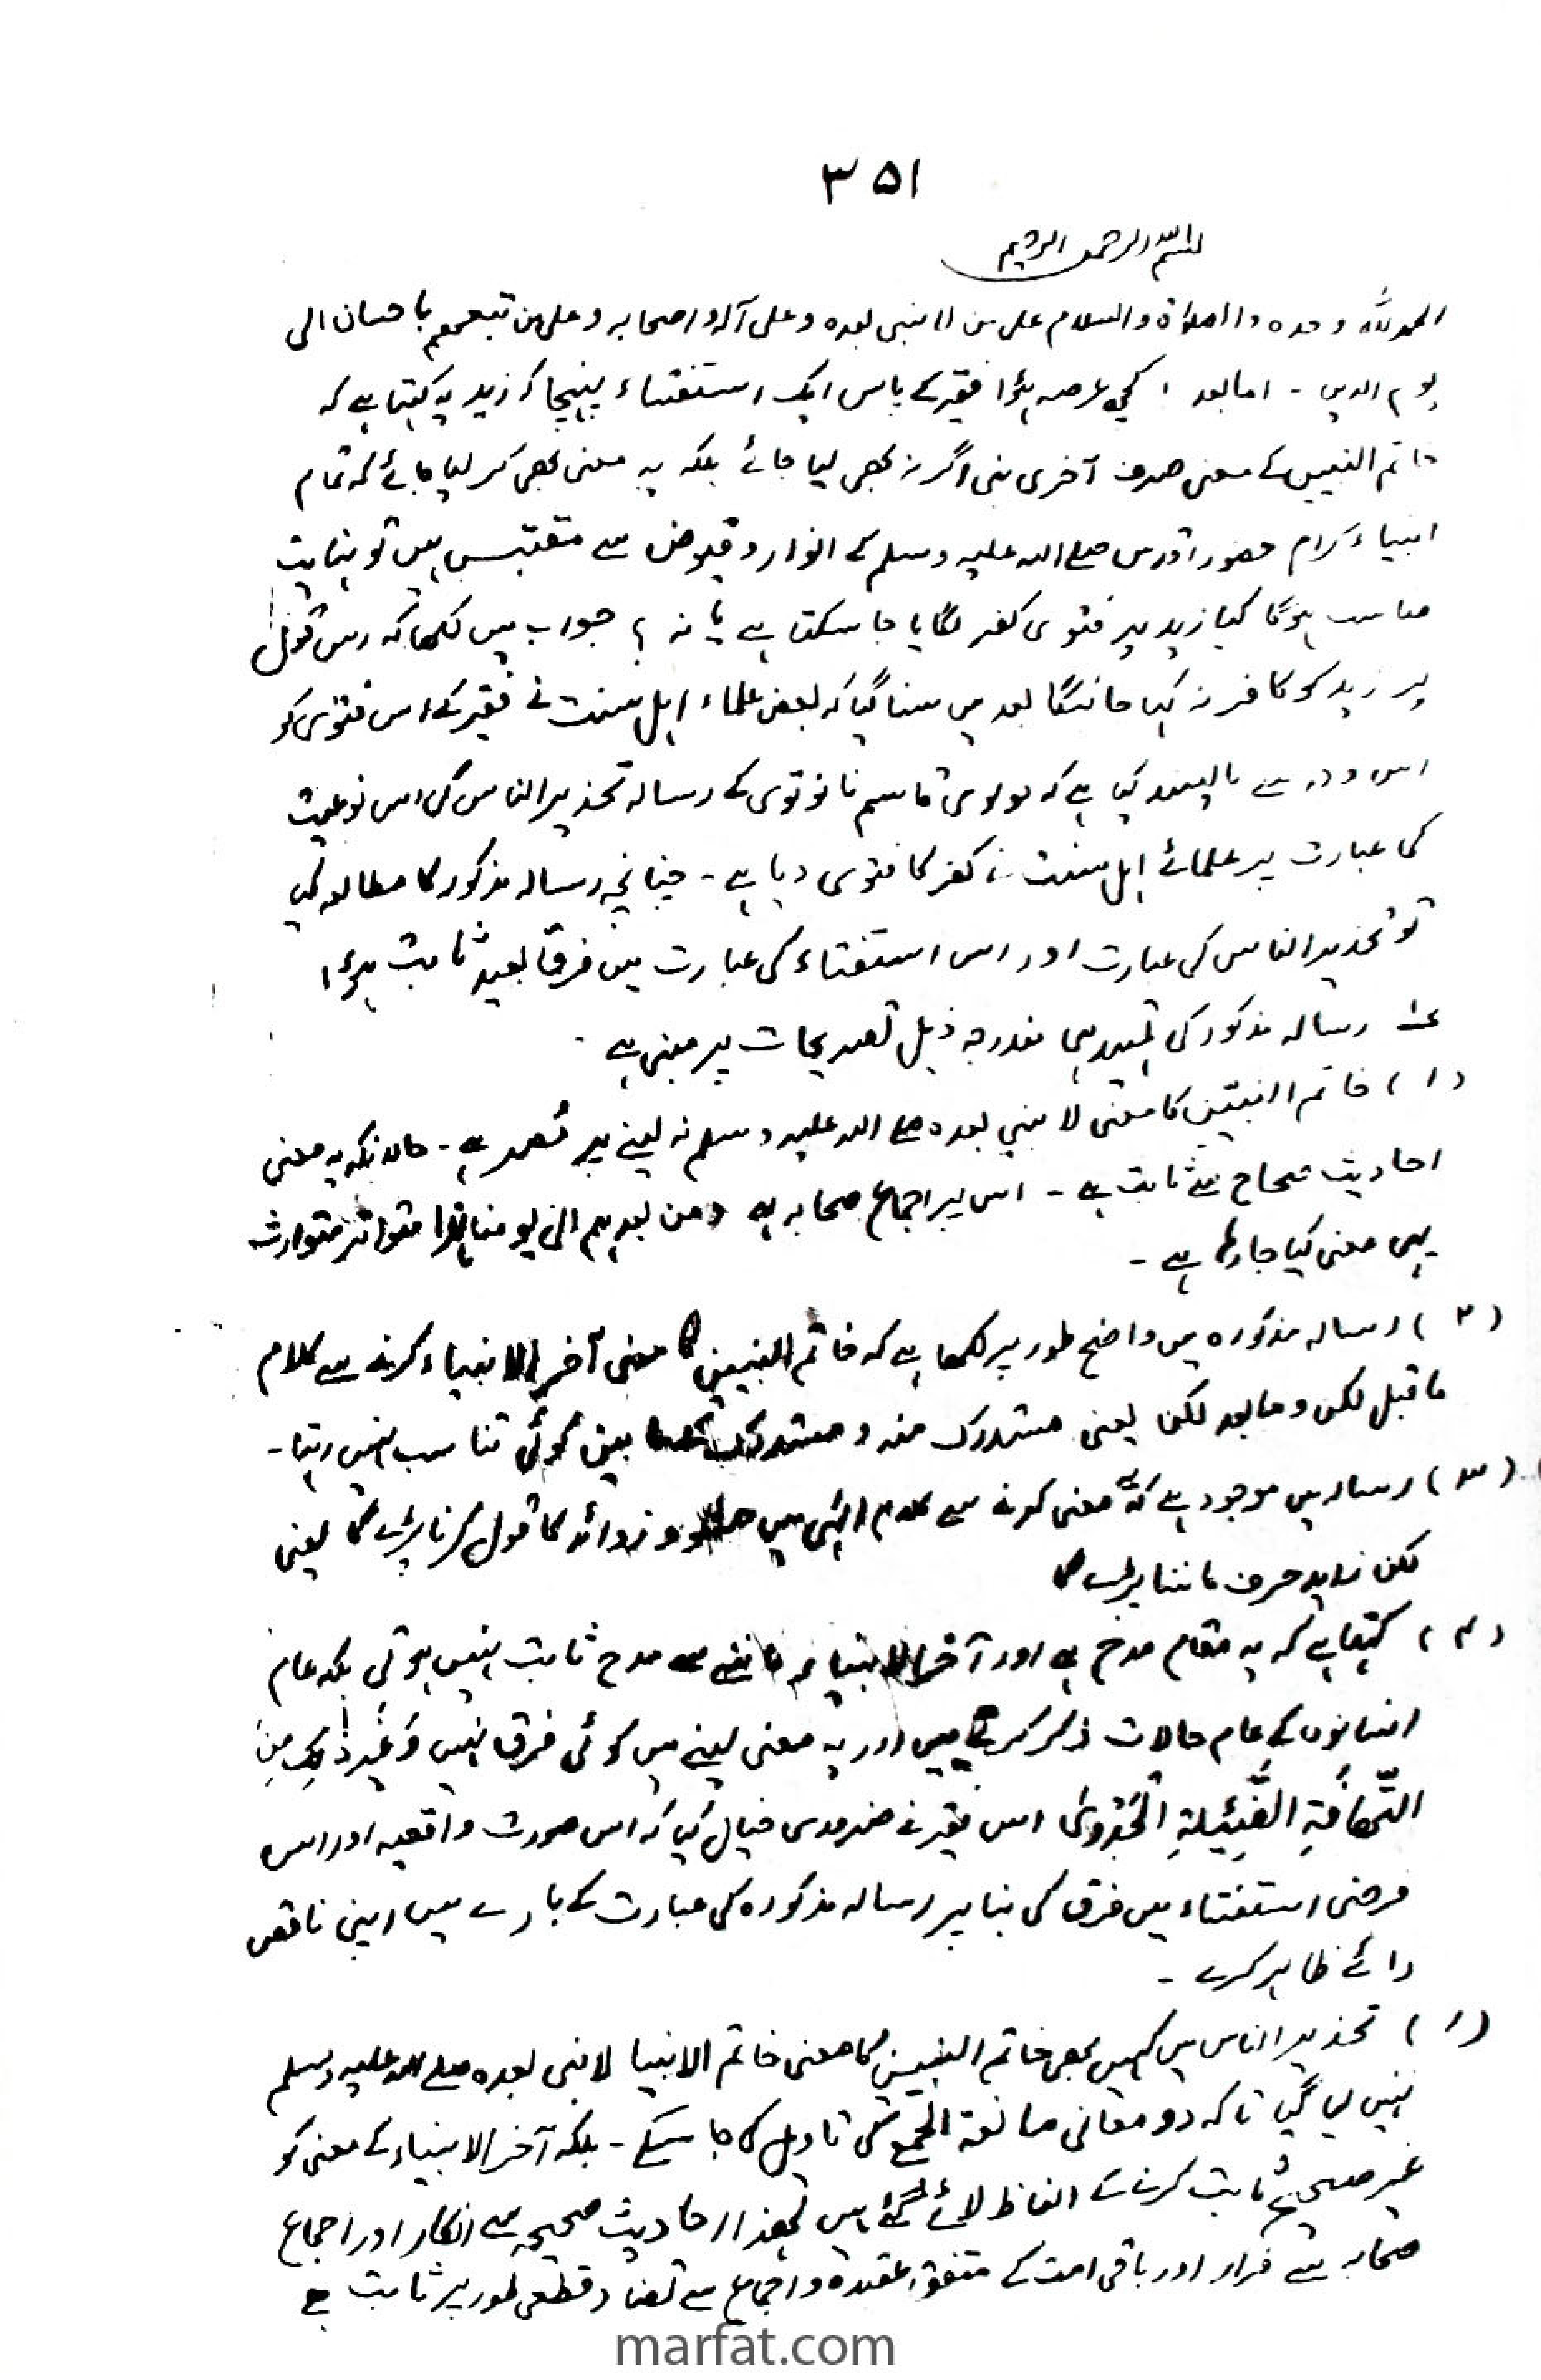 ۳۵۱
بسم اللہ الرحمن الرحیم
الحمد للہ وحدہ والصلوٰۃ والسلام علی من لا نبی بعدہ وعلی آلہ واصحابہ وعلی من تبعھم باحسان الی
یوم الدین ۔ اما بعد ! کچھ عرصہ ہؤا فقیر کے پاس ایک استفتاء پہنچا کہ زید یہ کہتا ہے کہ
خاتم النبیین کے معنی صرف آخری نبی اگر نہ بھی لیا جائے بلکہ یہ معنی بھی کر لیا جائے کہ تمام
انبیاء کرام حضور اقدس صلے اللہ علیہ وسلم کے انوار و فیوض سے مقتبس ہیں تو نہایت
مناسب ہوگا کیا زید پر فتوی کفر لگایا جا سکتا ہے یا نہ ؟ جواب میں لکھا کہ اس قول
پر زید کو کافر نہ کہا جائیگا بعد میں سنا گیا کہ بعض علماء اہل سنت نے فقیر کے اس فتوی کو
اس وجہ سے ناپسند کیا ہے کہ مولوی قاسم نانوتوی کے رسالہ تحذیر الناس کی اس نوعیت
کی عبارت پر علمائے اہل سنت نے کفر کا فتوی دیا ہے ۔ چنانچہ رسالہ مذکور کا مطالعہ کیا
تو تحذیر الناس کی عبارت اور اس استفتاء کی عبارت میں فرق بعید ثابت ہؤا
رسالہ مذکور کی تمہید ہی مندرجہ ذیل تصریحات پر مبنی ہے
(۱) خاتم النبیین کا معنی لا نبی بعدہ صلے اللہ علیہ وسلم نہ لینے پر مصر ہے ۔ حالانکہ یہ معنی
احادیث صحاح سے ثابت ہے ۔ اس پر اجماع صحابہ ہے ومن بعدہم الی یومنا ہذا متواتر متوارث
یہی معنی کیا جا رہا ہے ۔
(۲) رسالہ مذکورہ میں واضح طور پر لکھا ہے کہ خاتم النبیین کا معنی آخر الانبیاء کرنے سے کلام
ما قبل لکن وما بعد لکن یعنی مستدرک منہ و مستدرک بین کوئی تناسب نہیں رہتا ۔
(۳) رسالہ میں موجود ہے کہ یہ معنی کرنے سے کلام الٰہی میں حشو و زوائد کا قول کرنا پڑے گا یعنی
لکن زاید حرف ماننا پڑے گا
(۴) کہتا ہے کہ یہ مقام مدح ہے اور آخر الانبیاء ماننے سے مدح ثابت نہیں ہوتی بلکہ عام
انسانوں کے عام حالات ذکر کرنے میں اور یہ معنی لینے میں کوئی فرق نہیں وَغَیر ذٰلِک مِنَ
اس فقیر نے ضروری خیال کیا کہ اس صورت واقعیہ اور اس
فرضی استفتاء میں فرق کی بنا پر رسالہ مذکورہ کی عبارت کے بارے میں اپنی ناقص
رائے ظاہر کرے ۔
(۱) تحذیر الناس میں کہیں بھی خاتم النبیین کا معنی خاتم الانبیا لا نبی بعدہ صلے اللہ علیہ وسلم
نہیں لیا گیا تاکہ دو معانی مانعۃ الجمع کی تاویل کی جا سکے ۔ بلکہ آخر الانبیاء کے معنی کو
غیر صحیح ثابت کرنے کے الفاظ لائے گئے ہیں لہذا احادیث صحیحہ سے انکار اور اجماع
صحابہ سے فرار اور باقی امت کے متفقہ عقیدہ و اجماع سے تضاد قطعی طور پر ثابت ہے
marfat.com